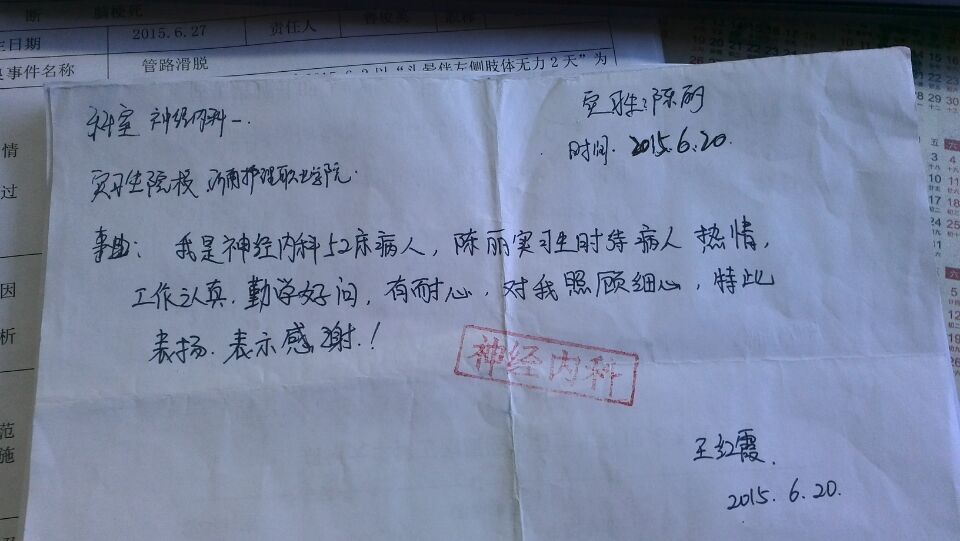 断 脑梗死
2015.6.27 责任人
日期
事件名称 管路滑脱
以“头晕伴左侧肢体无力2天”为
情
过
因
析
范
施
科室 神经内科一
实习生:陈丽
时间: 2015.6.20.
实习生院校 济南护理职业学院.
事由: 我是神经内科52床病人,陈丽实习生对待病人热情,
工作认真.勤学好问,有耐心,对我照顾细心,特此
表扬.表示感谢.!
神经内科
王红霞.
2015.6.20.